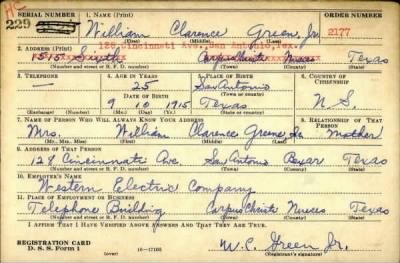 HC
SERIAL NUMBER 1. NAME (Print) ORDER NUMBER
229 William Clarence Green, Jr. 2177
(First) (Middle) (Last)
128 Cincinnati Ave., San Antonio, Tex.
2. ADDRESS (Print)
1515 Sixth Corpus Christi Nueces Texas
(Number and street or R. F. D. number) (Town) (County) (State)
3. TELEPHONE 4. AGE IN YEARS 5. PLACE OF BIRTH 6. COUNTRY OF CITIZENSHIP
— 25 San Antonio
DATE OF BIRTH (Town or county)
9 10 1915 Texas U.S.
(Exchange) (Number) (Mo.) (Day) (Yr.) (State or country)
7. NAME OF PERSON WHO WILL ALWAYS KNOW YOUR ADDRESS 8. RELATIONSHIP OF THAT PERSON
Mrs. William Clarence Greene, Sr. Mother
(Mr., Mrs., Miss) (First) (Middle) (Last)
9. ADDRESS OF THAT PERSON
128 Cincinnati Ave. San Antonio Bexar Texas
(Number and street or R. F. D. number) (Town) (County) (State)
10. EMPLOYER'S NAME
Western Electric Company
11. PLACE OF EMPLOYMENT OR BUSINESS
Telephone Building Corpus Christi Nueces Texas
(Number and street or R. F. D. number) (Town) (County) (State)
I AFFIRM THAT I HAVE VERIFIED ABOVE ANSWERS AND THAT THEY ARE TRUE.
REGISTRATION CARD
D. S. S. Form 1 (over) 16—17105 W.C. Green Jr.